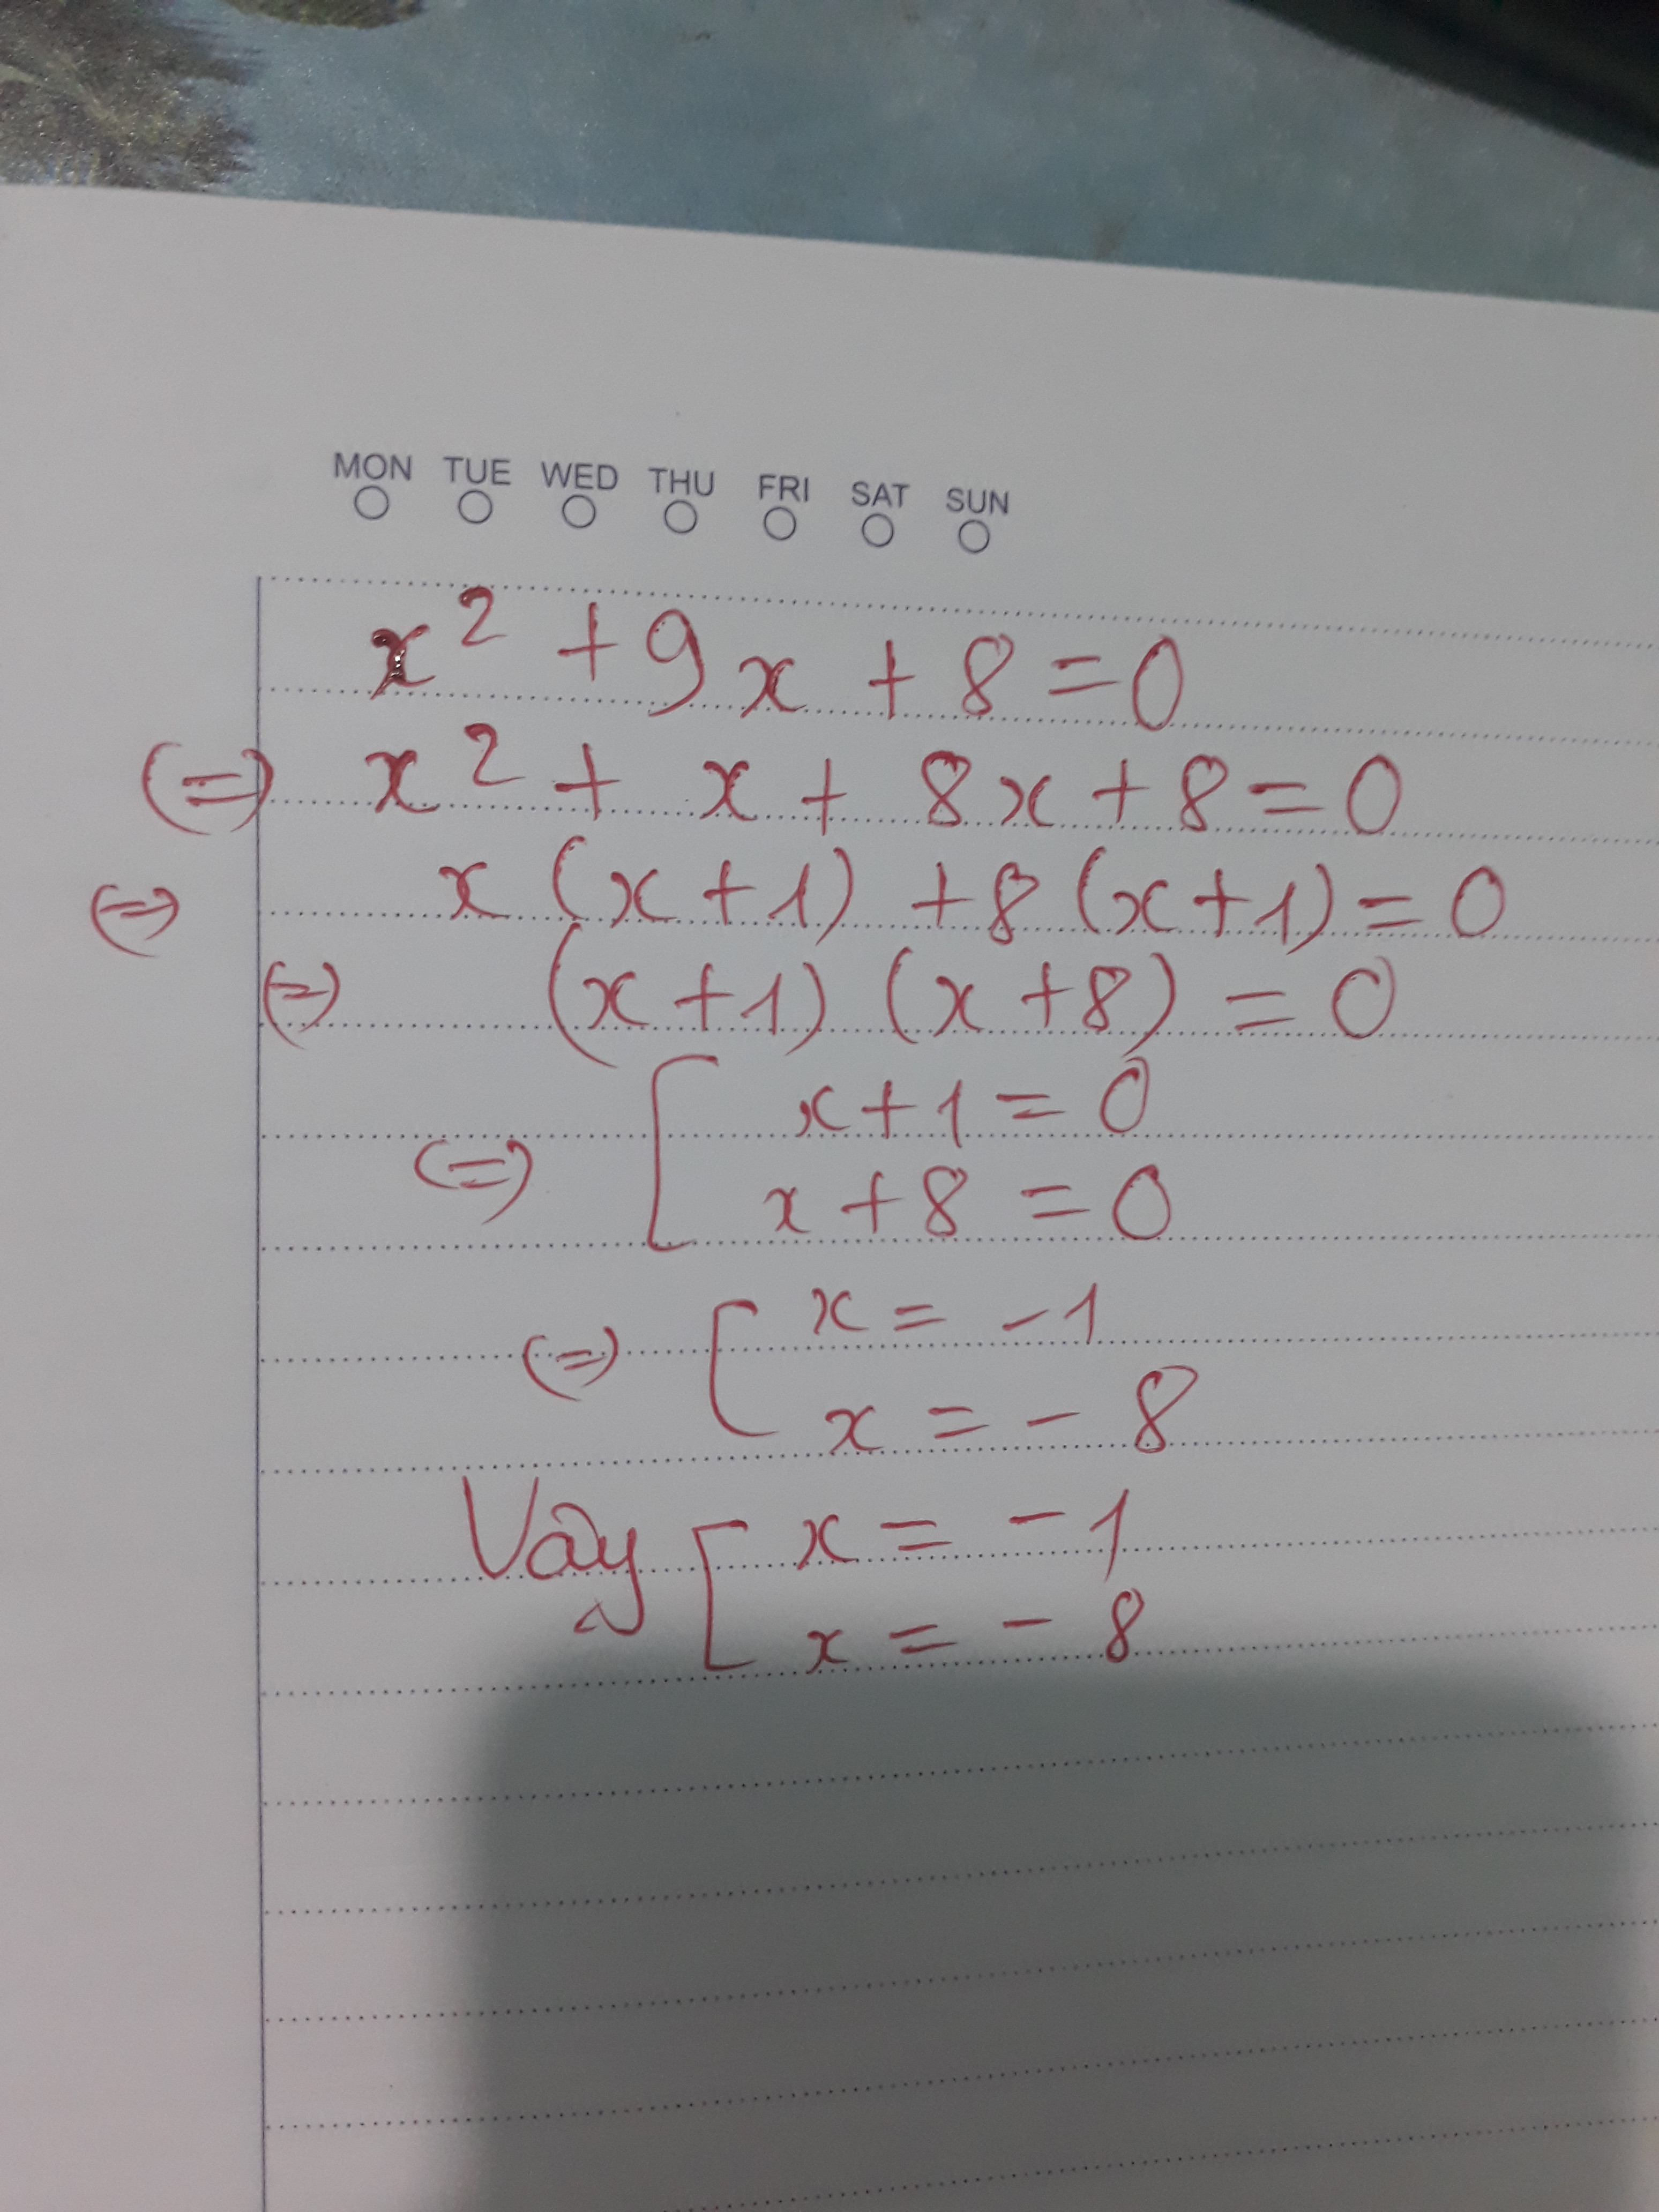 MON TUE WED THU FRI SAT SUN
x² + 9x + 8 = 0
(=) x² + x + 8x + 8 = 0
(=) x (x + 1) + 8 (x + 1) = 0
(=) (x + 1) (x + 8) = 0
(=) [ x + 1 = 0
x + 8 = 0
(=) [ x = - 1
x = - 8
Vậy [ x = - 1
x = - 8